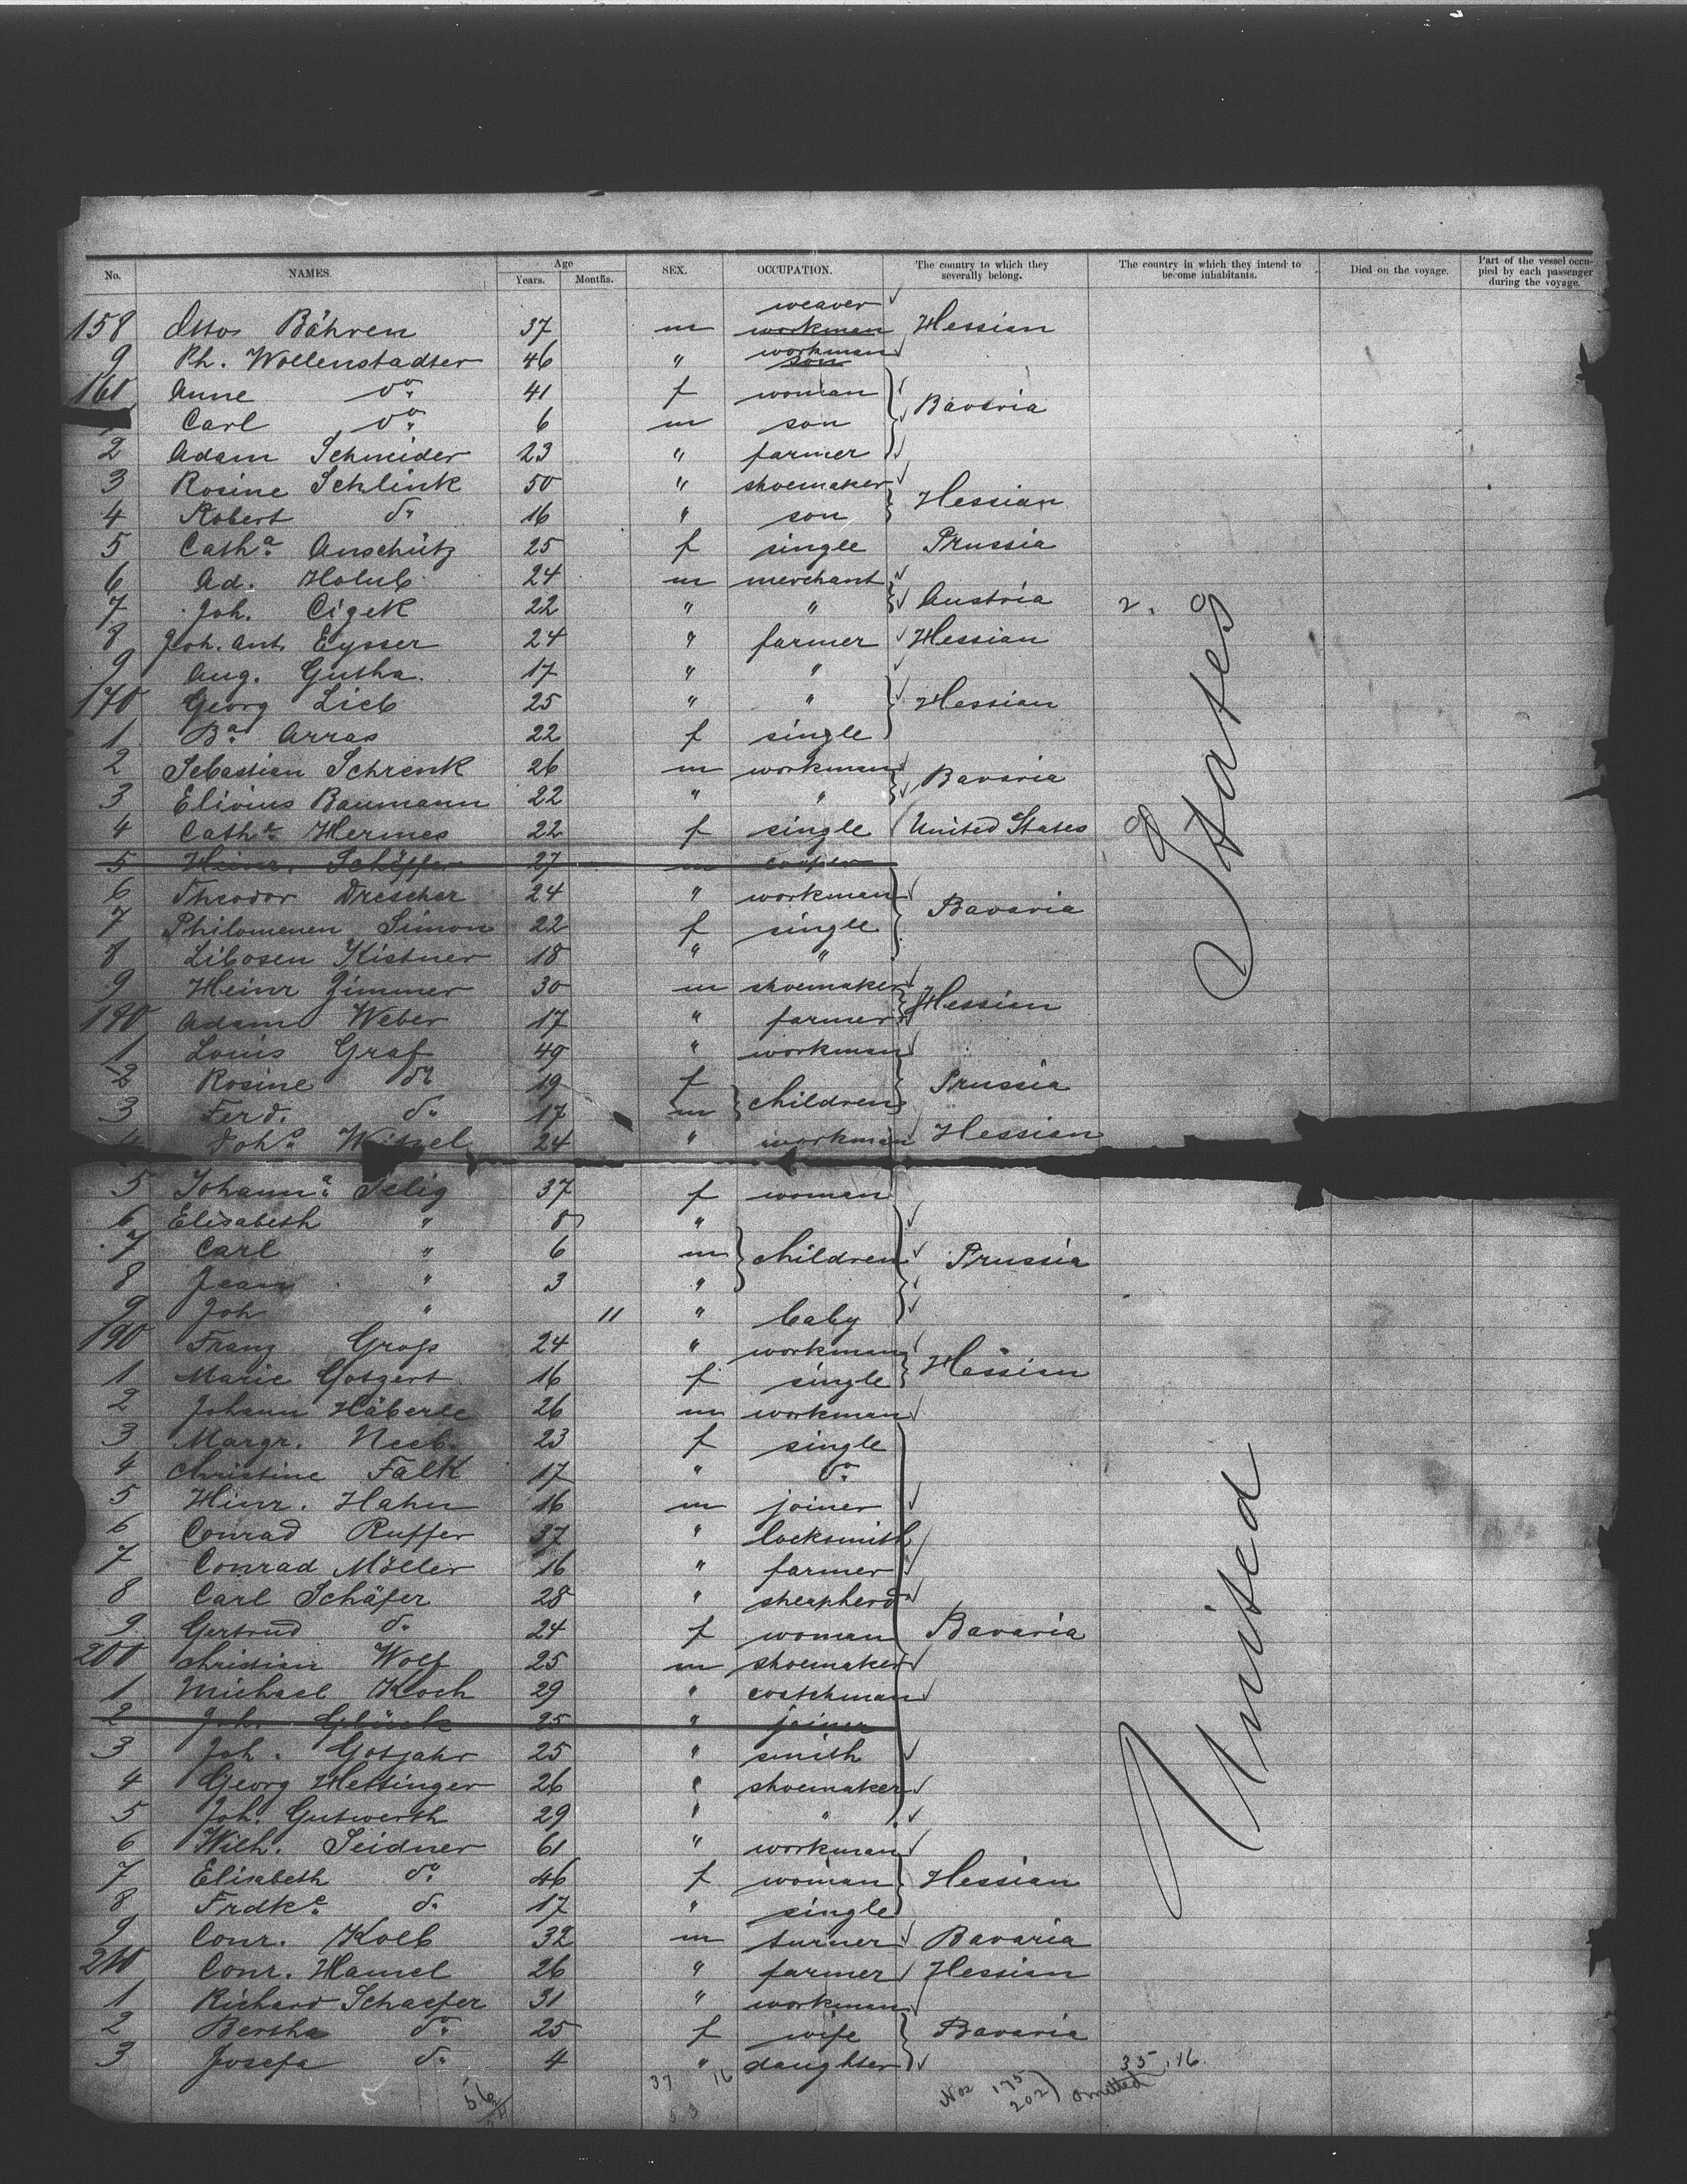 No. NAMES. Age Years. Months. SEX. OCCUPATION. The country to which they severally belong. The country in which they intend to become inhabitants. Died on the voyage. Part of the vessel occupied by each passenger during the voyage.
weaver
158 Bähren 37 m workman Hessian
workman
9 Ph. Wollenstadter 46 " son
160 Anne do. 41 f woman
Carl do. 6 m son Bavaria
2 Adam Schneider 23 " farmer
3 Rosine Schlink 50 " shoemaker
4 Robert do. 16 " son Hessian
5 Catha. Anschütz 25 f single Prussia
6 Ad. Holub 24 m merchant
7 Joh. Cizek 22 " " Austria 2.
8 Joh. Ant. Eysser 24 " farmer Hessian
9 Aug. Gutha 17 " "
170 Georg Lieb 25 " " Hessian
1 Ba. Arras 22 f single
2 Sebastian Schrenk 26 m workman
3 Elivius Baumann 22 " " Bavaria
4 Cathe. Hermes 22 f single United States
5 Heinr. Schäffer 27 m
6 Theodor Drescher 24 " workman
7 Philomenen Simon 22 f single Bavaria
8 Libosen Kistner 18 " "
9 Heinr Zimmer 30 m shoemaker
180 Adam Weber 17 " farmer Hessian
1 Louis Graf 49 " workman
2 Rosine do. 19 f
3 Ferd. do. 17 m children Prussia
4 24 " workman Hessian
5 Johanna. Selig 37 f woman
6 Elisabeth " 8 "
7 Carl " 6 m children Prussia
8 Jean " 3 "
9 Joh " 11 " baby
190 Franz Groß 24 " workman
1 Marie Gotgert 16 f single Hessian
2 Johann Häberle 26 m workman
3 Margr. Neeb. 23 f single
4 Christine Falk 17 " do.
5 Hinr. Hahn 16 m joiner
6 Conrad Ruffer 37 " locksmith
7 Conrad Möller 16 " farmer
8 Carl Schäfer 28 " sherpherd
9 Gertrud do. 24 f woman Bavaria
200 Christian Wolf 25 m shoemaker
1 Michael Koch 29 " coatchman
2 Joh. Glück 25 " joiner
3 Joh. Gotjahr 25 " smith
4 Georg Hettinger 26 " shoemaker
5 Joh. Gutwerth 29 " "
6 Wilh. Seidner 61 " workman
7 Elisabeth do. 46 f woman Hessian
8 Frdke. do. 17 " single
9 Conr. Kolb 32 m turner Bavaria
210 Conr. Hamel 26 " farmer Hessian
1 Richard Schaefer 31 " workman
2 Bertha do. 25 f wife Bavaria
3 Josefa do. 4 " daughter
United States
37 16 Nos 175 202) omitted 35,16.